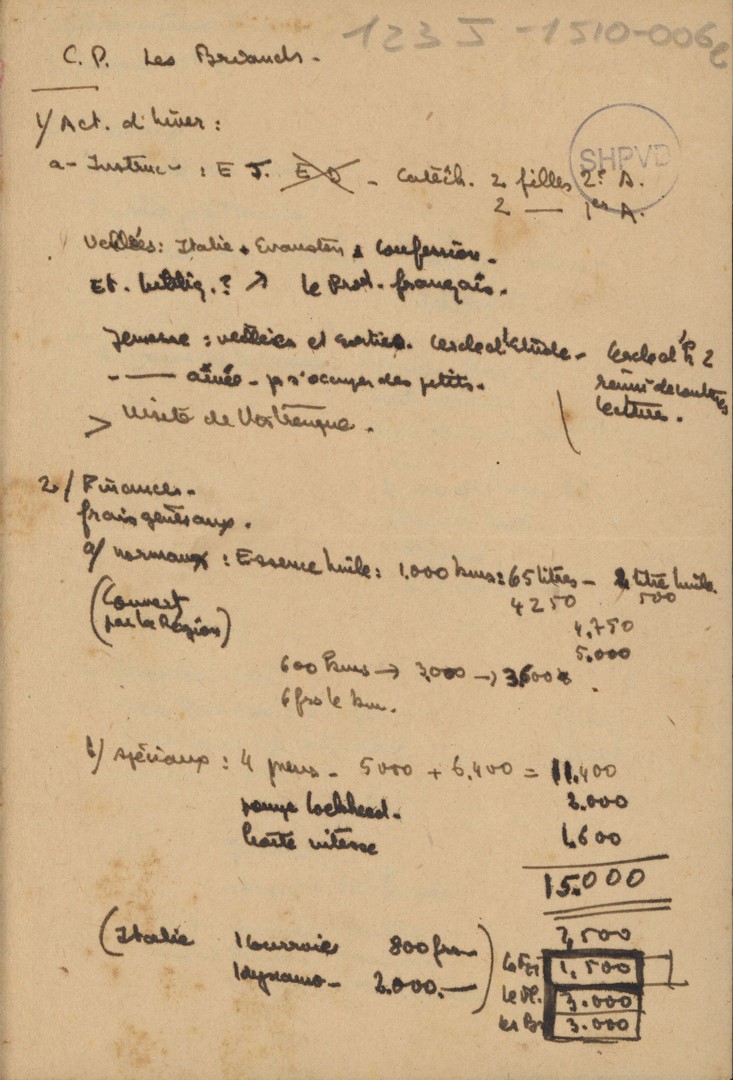 123 J - 1510-006e
C.P. Les Briands -
1/ Act. d'hiver :
SHPVD
a- Instruc- : E J. E D - Catéch. 2 filles 2e A.
2 — 1er A.
Veillées : Italie + Evanston + Confession -
Et. bibliq. ? ↗ le Prot. français.
Jeunesse : veillées et sorties. Cercle d'Etude - Cercle d'E 2
- — aînée - pr s'occuper des petits.
lecture.
> Visite de
2/ Finances -
frais généraux.
a/ normaux : Essence huile : 1.000 kms = 65 litres - 2 litre huile
4250 500
(Couvert
par la Région)
4.750
5.000
600 kms → 3,000 → 3,600
6 frs le km.
b/ spéciaux : 4 pneus - 5000 + 6.400 = 11.400
pompe Lockheed - 2.000
boîte vitesse 1,600
15.000
(Italie 1 courroie 800 frs
1 dynamo - 2.000.—)
2,500
1,500
3.000
les Br 3.000